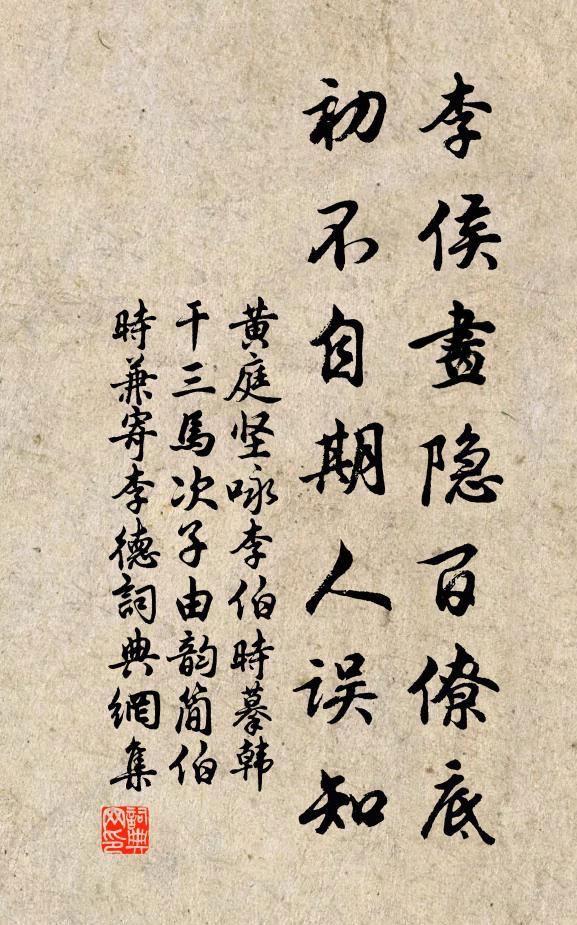 李侯畫隐百僚底
初不自期人误知
黄庭坚咏李伯時摹韩
干三馬次子由韵简伯
時兼寄李德詞典網集
詞典
网印